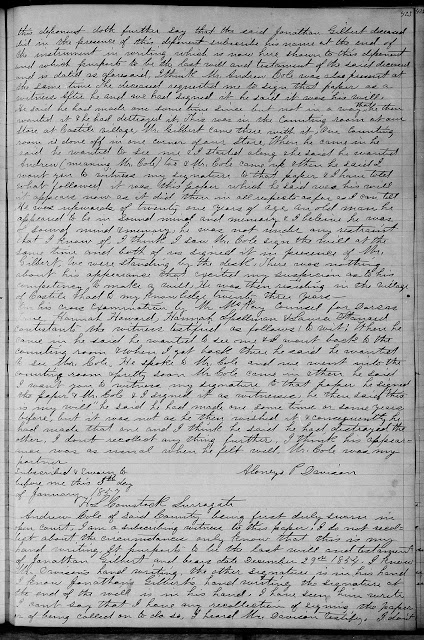 523
this deponent doth further say that the said Jonathan Gilbert deceased
did in the presence of this deponent subscribe his name at the end of
the instrument in writing which is now here shown to this deponent
and which purports to be the last will and testament of the said deceased
and is dated as aforesaid, I think Mr. Andrew Cole was also present at
the same time, the deceased requested me to sign that paper as a
witness After he and we had signed it he said it was his will.
he said he had made one some time since but not in a way that he then
wanted it & he had destroyed it. This was in the Counting room at our
Store at Castile village Mr Gilbert came there with it, Our Counting
room is done off in one corner of our Store When he came in he
said he wanted to see me I started along he said he wanted
Andrew (meaning Mr. Cole) too & Mr Cole came up & then he said I
want you to witness my signature to that paper & I have told
what followed it was this paper which he said was his will
it appears now as it did then in all respects as far as I can tell
He was upwards of twenty one years of age an old man he
appeared to be in sound mind and memory & I believe he was
of sound mind & memory he was not under any restraint
that I know of, I think I saw Mr Cole sign the will at the
same time and both of us signed it in presence of Mr.
Gilbert, we were standing by the desk There was nothing
about his appearance that excited my suspicion as to his
competency to make a will. He was then residing in the village
of Castile & had to my knowledge twenty three years
On his cross examination by Mr counsel for
Hannah Howard, Hannah Spellman
contestants the witness testified as follows (to wit) When he
came in he said he wanted to see me & I went back to the
counting room & when I got back there he said he wanted
to see Mr. Cole, I spoke to Mr Cole and we went into the
counting room pretty soon Mr Cole came in & then he said
I want you to witness my signature to that paper he signed
the paper & Mr Cole & I signed it as witnesses, he then said this
is my will he said he had made one some time or some years
before, but it was not as he then wished it & consequently he
had made that one and I think he said he had destroyed the
other, I dont recollect any thing further, I think his appear-
ance was as usual when he felt well. Mr. Cole was my
partner.
Subscribed & Sworn to
before me this day
of January 1857
Comstock Surrogate
P Davison
Andrew Cole of said County being first duly sworn in
open court, I am a subscribing witness to this paper, I do not recol-
lect about the circumstances only know that this is my
hand writing It purports to be the last will and testament
of Jonathan Gilbert and bears date December 29th 1854, I know
Mr. Davison's hand writing the other signature is in his hand
I know Jonathan Gilberts hand writing the signature at
the end of the will is in his hand. I have seen him write
I cant say that I have any recollection of signing this paper
or of being called on to do so, I heard Mr. Davison testify, I dont